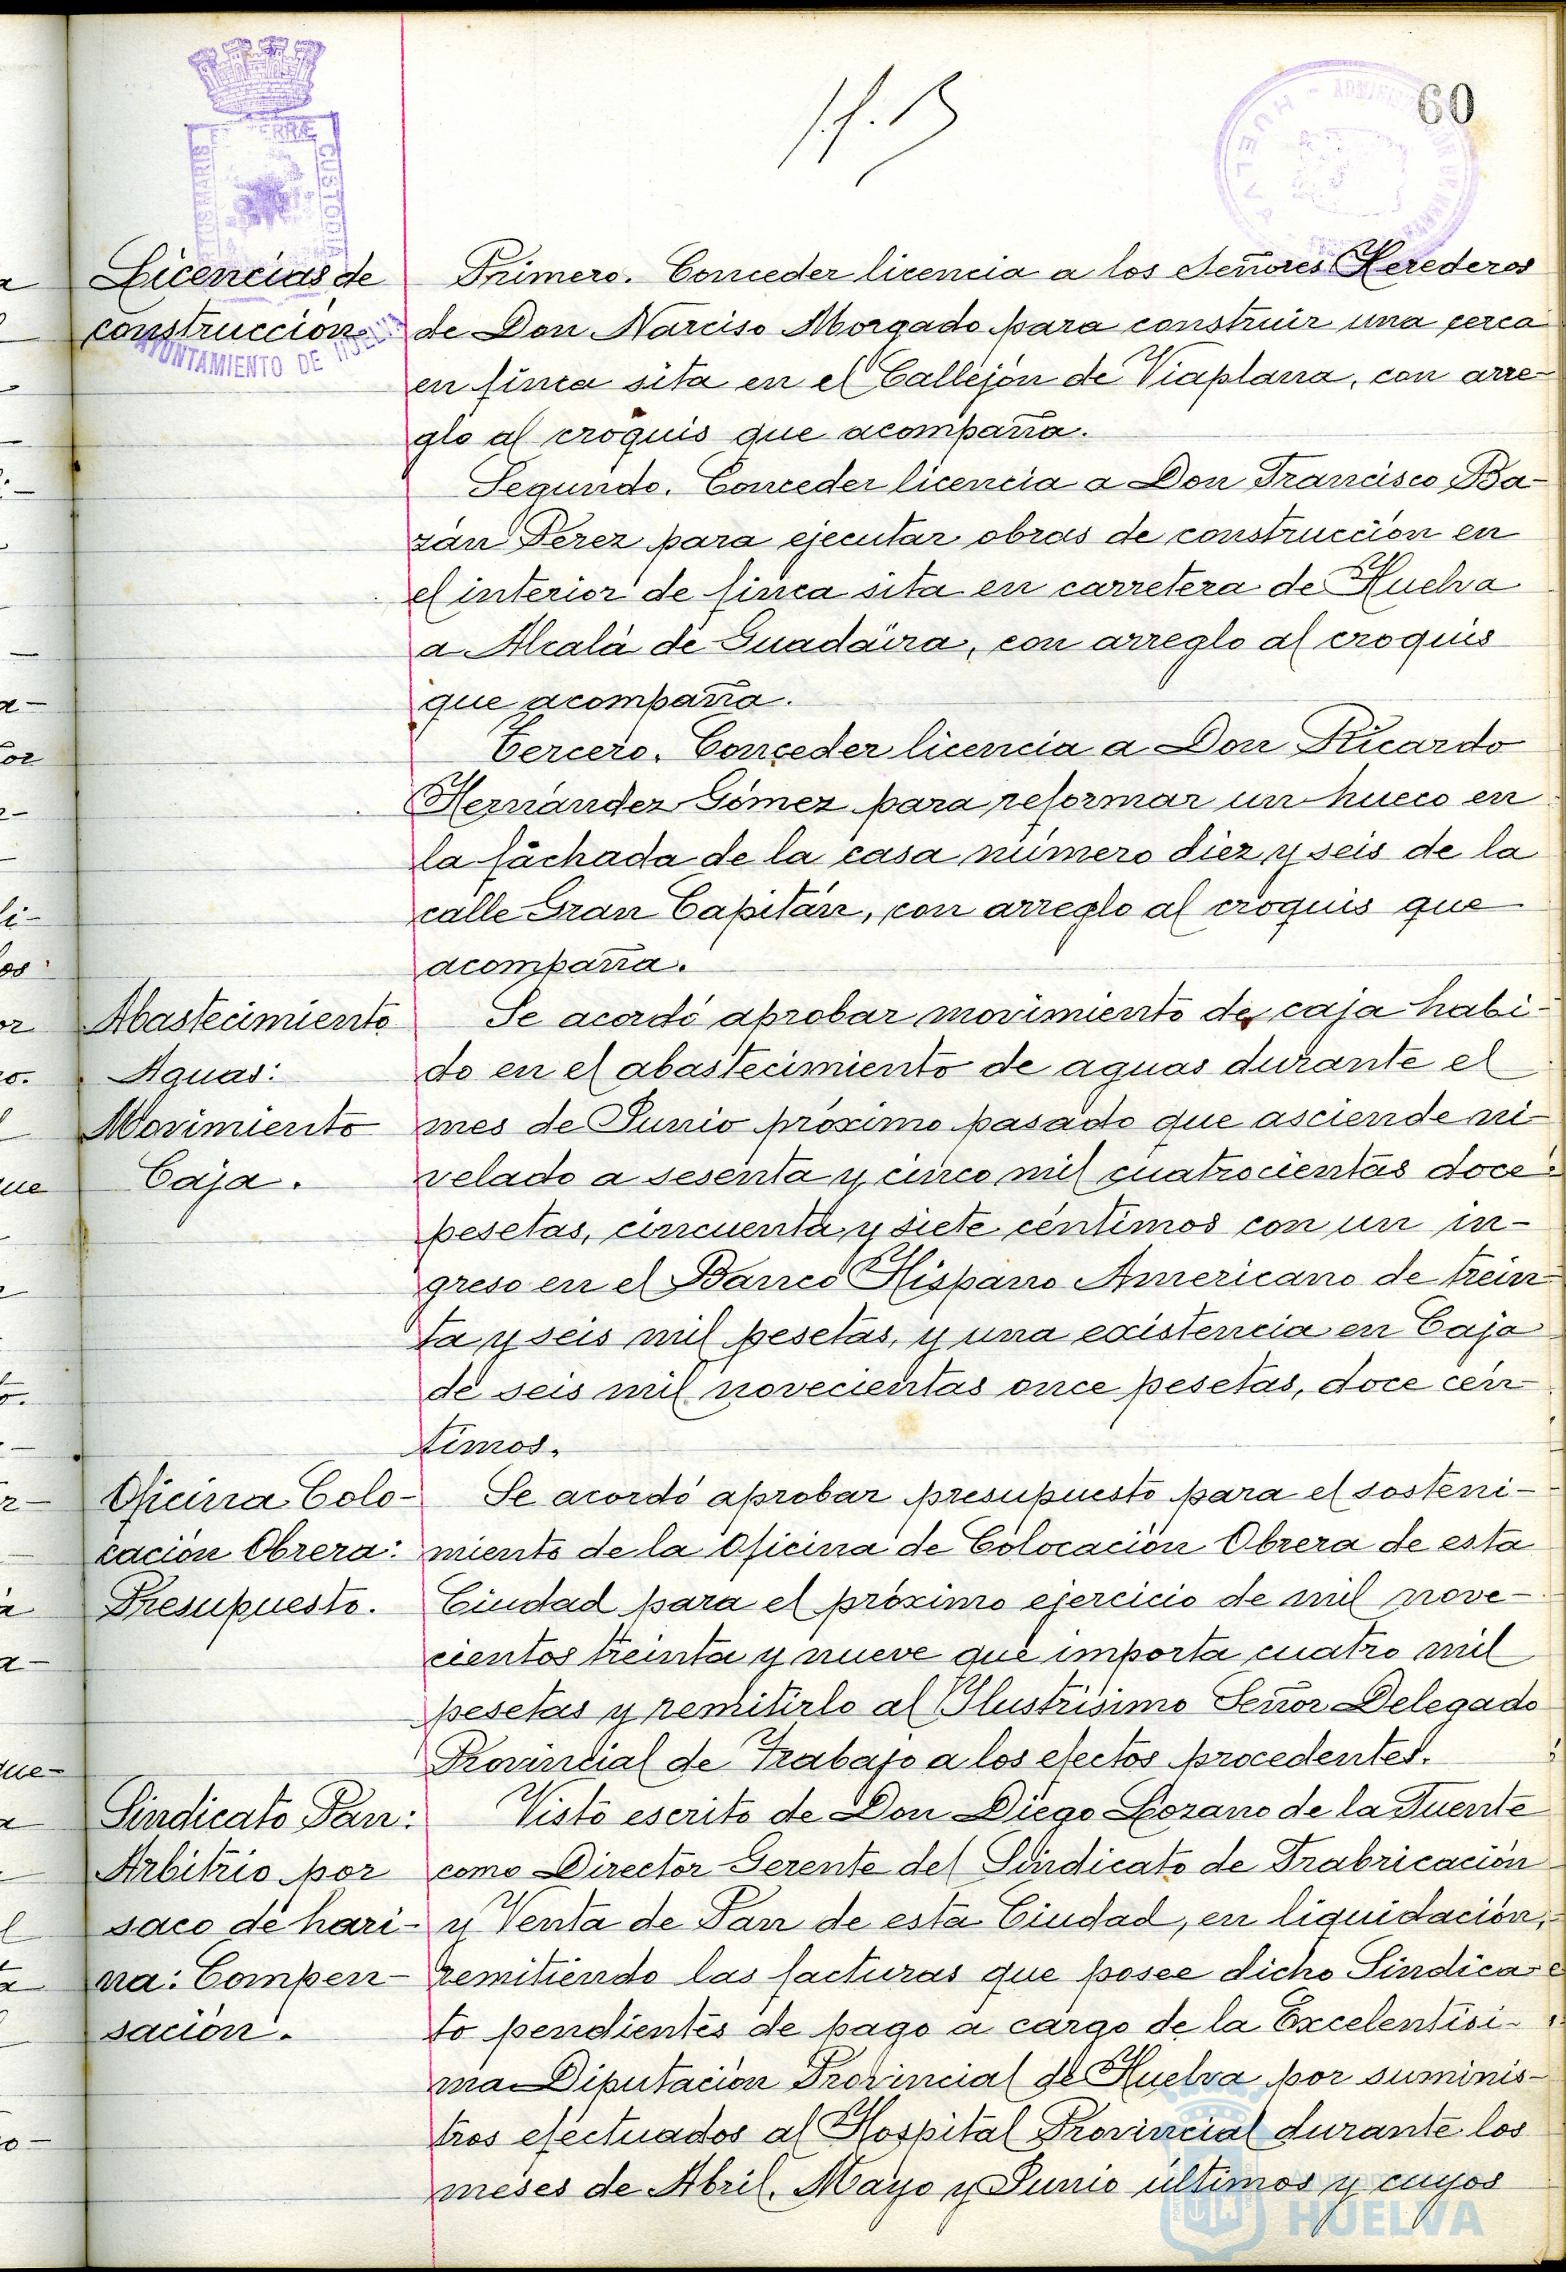 60
Licencias de
construcción.
AYUNTAMIENTO DE HUELVA
Primero. Conceder licencia a los Señores Herederos
de Don Narciso Morgado para construir una cerca
en finca sita en el Callejón de Viaplana, con arre-
glo al croquis que acompaña.
Segundo. Conceder licencia a Don Francisco Ba-
zán Pérez para ejecutar obras de construcción en
el interior de finca sita en carretera de Huelva
a Alcalá de Guadaira, con arreglo al croquis
que acompaña.
Tercero. Conceder licencia a Don Ricardo
Hernández Gómez para reformar un hueco en
la fachada de la casa número diez y seis de la
calle Gran Capitán, con arreglo al croquis que
acompaña.
Abastecimiento
Aguas:
Movimiento
Caja.
Se acordó aprobar movimiento de caja habi-
do en el abastecimiento de aguas durante el
mes de Junio próximo pasado que asciende ni-
velado a sesenta y cinco mil cuatrocientas doce
pesetas, cincuenta y siete céntimos con un in-
greso en el Banco Hispano Americano de trein
ta y seis mil pesetas, y una existencia en Caja
de seis mil novecientas once pesetas, doce cén
timos.
Oficina Colo-
cación Obrera:
Presupuesto.
Se acordó aprobar presupuesto para el sosteni-
miento de la Oficina de Colocación Obrera de esta
Ciudad para el próximo ejercicio de mil nove-
cientos treinta y nueve que importa cuatro mil
pesetas y remitirlo al Ilustrísimo Señor Delegado
Provincial de Trabajo a los efectos procedentes.
Sindicato Pan:
Arbitrio por
saco de hari-
na: Compen-
sación.
Visto escrito de Don Diego Lozano de la Fuente
como Director Gerente del Sindicato de Frabricación
y Venta de Pan de esta Ciudad, en liquidación,
remitiendo las facturas que posee dicho Sindica-
to pendientes de pago a cargo de la Excelentísi-
ma Diputación Provincial de Huelva por suminis-
tros efectuados al Hospital Provincial durante los
meses de Abril, Mayo y Junio últimos y cuyos
HUELVA